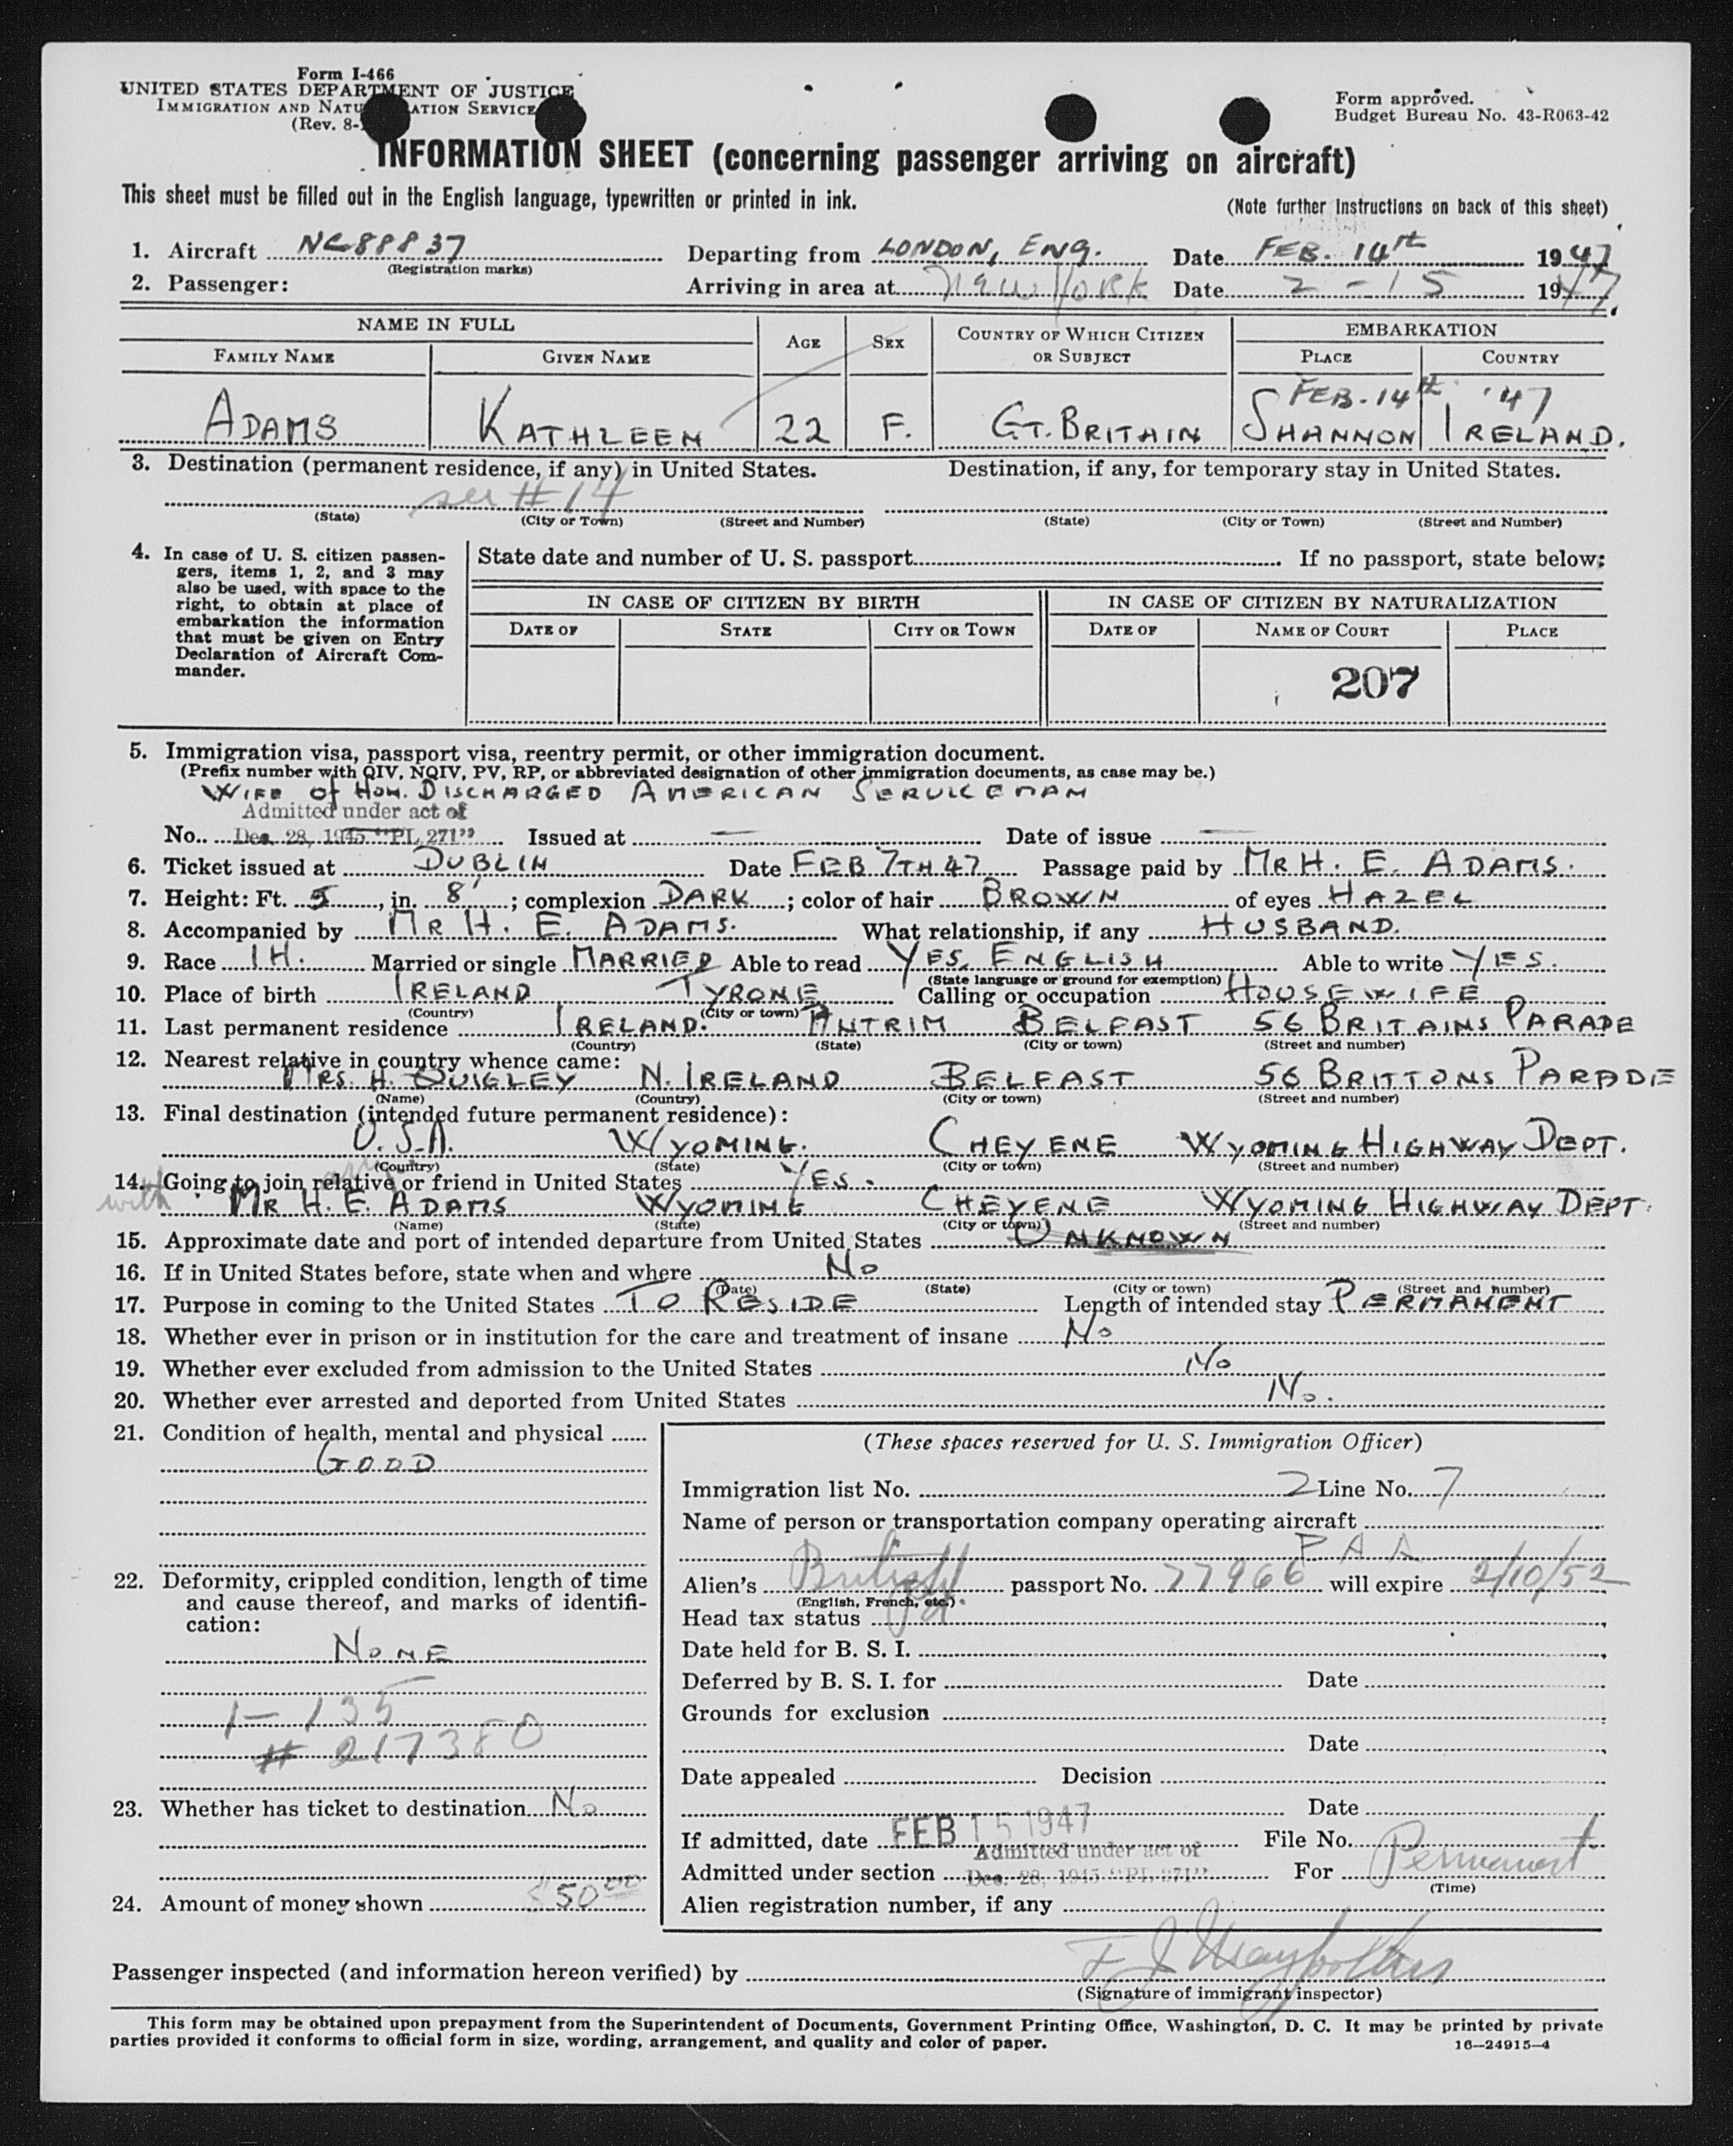 Form I-466
UNITED STATES DEPARTMENT OF JUSTICE
IMMIGRATION AND SERVICE
(Rev. 8-
Form approved.
Budget Bureau No. 43-R063-42
INFORMATION SHEET (concerning passenger arriving on aircraft)
This sheet must be filled out in the English language, typewritten or printed in ink.
(Note further instructions on back of this sheet)
1. Aircraft NC88837 Departing from LONDON, ENG. Date FEB. 14th 1947
(Registration marks)
2. Passenger: Arriving in area at New York Date 2-15 1947
NAME IN FULL AGE SEX COUNTRY OF WHICH CITIZEN OR SUBJECT EMBARKATION
FAMILY NAME GIVEN NAME PLACE COUNTRY
FEB. 14th '47
ADAMS KATHLEEN 22 F. GT. BRITAIN SHANNON IRELAND.
3. Destination (permanent residence, if any) in United States. Destination, if any, for temporary stay in United States.
see #14
(State) (City or Town) (Street and Number) (State) (City or Town) (Street and Number)
4. In case of U. S. citizen passen-
gers, items 1, 2, and 3 may
also be used, with space to the
right, to obtain at place of
embarkation the information
that must be given on Entry
Declaration of Aircraft Com-
mander.
State date and number of U. S. passport If no passport, state below:
IN CASE OF CITIZEN BY BIRTH IN CASE OF CITIZEN BY NATURALIZATION
DATE OF STATE CITY OR TOWN DATE OF NAME OF COURT PLACE
207
5. Immigration visa, passport visa, reentry permit, or other immigration document.
(Prefix number with QIV, NQIV, PV, RP, or abbreviated designation of other immigration documents, as case may be.)
WIFE OF HON. DISCHARGED AMERICAN SERVICEMAN
Admitted under act of
No. Dec. 28, 1945 "PL 271" Issued at — Date of issue —
6. Ticket issued at DUBLIN Date FEB 7TH 47 Passage paid by MR H. E. ADAMS.
7. Height: Ft. 5, in. 8'; complexion DARK; color of hair BROWN of eyes HAZEL
8. Accompanied by MR H. E. ADAMS. What relationship, if any HUSBAND.
9. Race IH. Married or single MARRIED Able to read YES, ENGLISH Able to write YES.
(State language or ground for exemption)
10. Place of birth IRELAND TYRONE Calling or occupation HOUSEWIFE
(Country) (City or town)
11. Last permanent residence IRELAND. ANTRIM BELFAST 56 BRITAINS PARADE
(Country) (State) (City or town) (Street and number)
12. Nearest relative in country whence came:
MRS. H. QUIGLEY N. IRELAND BELFAST 56 BRITTONS PARADE
(Name) (Country) (City or town) (Street and number)
13. Final destination (intended future permanent residence):
U.S.A. WYOMING. CHEYENE WYOMING HIGHWAY DEPT.
(Country) (State) (City or town) (Street and number)
14. Going to join relative or friend in United States YES.
with MR H. E. ADAMS WYOMING CHEYENE WYOMING HIGHWAY DEPT.
(Name) (State) (City or town) (Street and number)
15. Approximate date and port of intended departure from United States UNKNOWN
16. If in United States before, state when and where NO
(Date) (State) (City or town) (Street and number)
17. Purpose in coming to the United States TO RESIDE Length of intended stay PERMANENT
18. Whether ever in prison or in institution for the care and treatment of insane NO
19. Whether ever excluded from admission to the United States NO
20. Whether ever arrested and deported from United States NO.
21. Condition of health, mental and physical
GOOD
22. Deformity, crippled condition, length of time
and cause thereof, and marks of identifi-
cation:
NONE
1-135
# 217380
23. Whether has ticket to destination NO
24. Amount of money shown $50.00
(These spaces reserved for U. S. Immigration Officer)
Immigration list No. 2 Line No. 7
Name of person or transportation company operating aircraft
PAA
Alien's British passport No. 77966 will expire 2/10/52
(English, French, etc.)
Head tax status
Date held for B. S. I.
Deferred by B. S. I. for Date
Grounds for exclusion
Date
Date appealed Decision
Date
If admitted, date FEB 15 1947 File No.
Admitted under act of
Admitted under section Dec. 28, 1945 "PL 271" For Permanent
(Time)
Alien registration number, if any
Passenger inspected (and information hereon verified) by
(Signature of immigrant inspector)
This form may be obtained upon prepayment from the Superintendent of Documents, Government Printing Office, Washington, D. C. It may be printed by private
parties provided it conforms to official form in size, wording, arrangement, and quality and color of paper.
16—24915-4